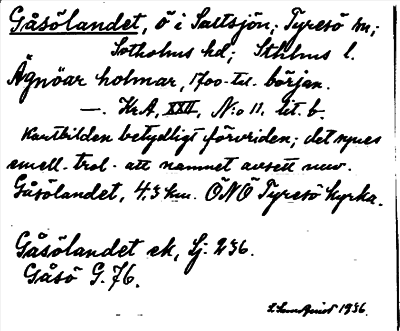 Gåsölandet, ö i Saltsjön, Tyresö sn;
Sotholms hd; Sthlms l.
Ägnöar holmar, 1700-tal. början.
—. KrA, XXII, N:o 11, lit. b.
Kartbilden betydligt förvriden; det synes
emell. trol. att namnet avsett nuv.
Gåsölandet, 4,3 km. ÖNÖ Tyresö kyrka.
Gåsölandet ek, Sj. 236.
Gåsö G. 76.
1936.